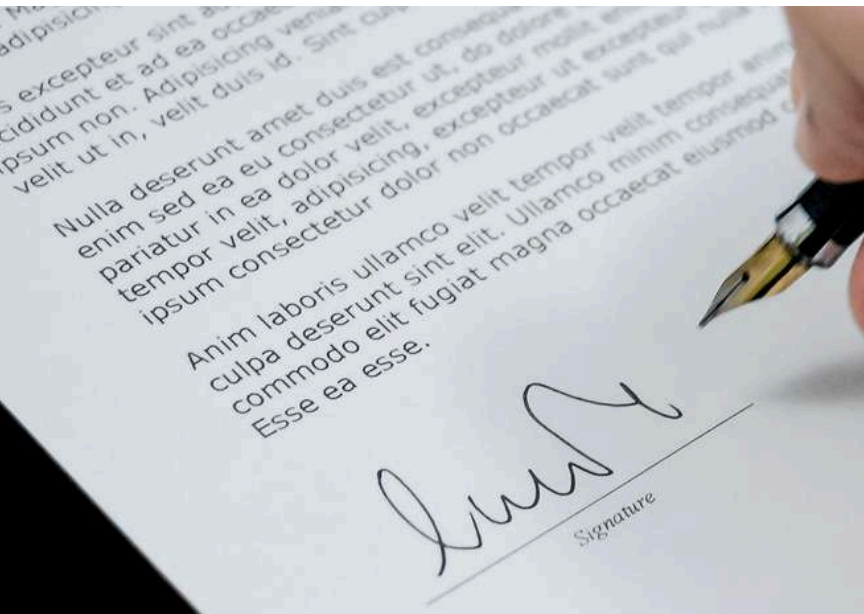 adipisicing
excepteur sint
cididunt et ad ea occaecat
ipsum non. Adipisicing veniam
velit ut in, velit duis id. Sint culpa
Nulla deserunt amet duis est consequat
enim sed ea eu consectetur ut, do dolore
pariatur in ea dolor velit, excepteur mollit
tempor velit, adipisicing, excepteur ut excepteur
ipsum consectetur dolor non occaecat sunt qui nulla
Anim laboris ullamco velit tempor velit tempor anim
culpa deserunt sint elit. Ullamco minim consequat
commodo elit fugiat magna occaecat eiusmod
Esse ea esse.
Signature